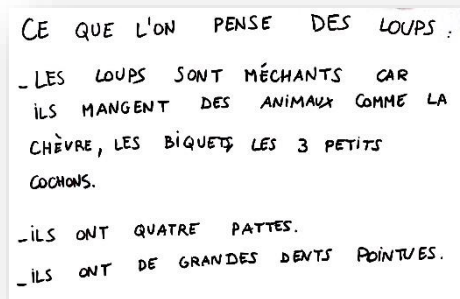 CE QUE L'ON PENSE DES LOUPS :
- LES LOUPS SONT MÉCHANTS CAR
ILS MANGENT DES ANIMAUX COMME LA
CHÈVRE, LES BIQUETS LES 3 PETITS
COCHONS.
- ILS ONT QUATRE PATTES.
- ILS ONT DE GRANDES DENTS POINTUES.